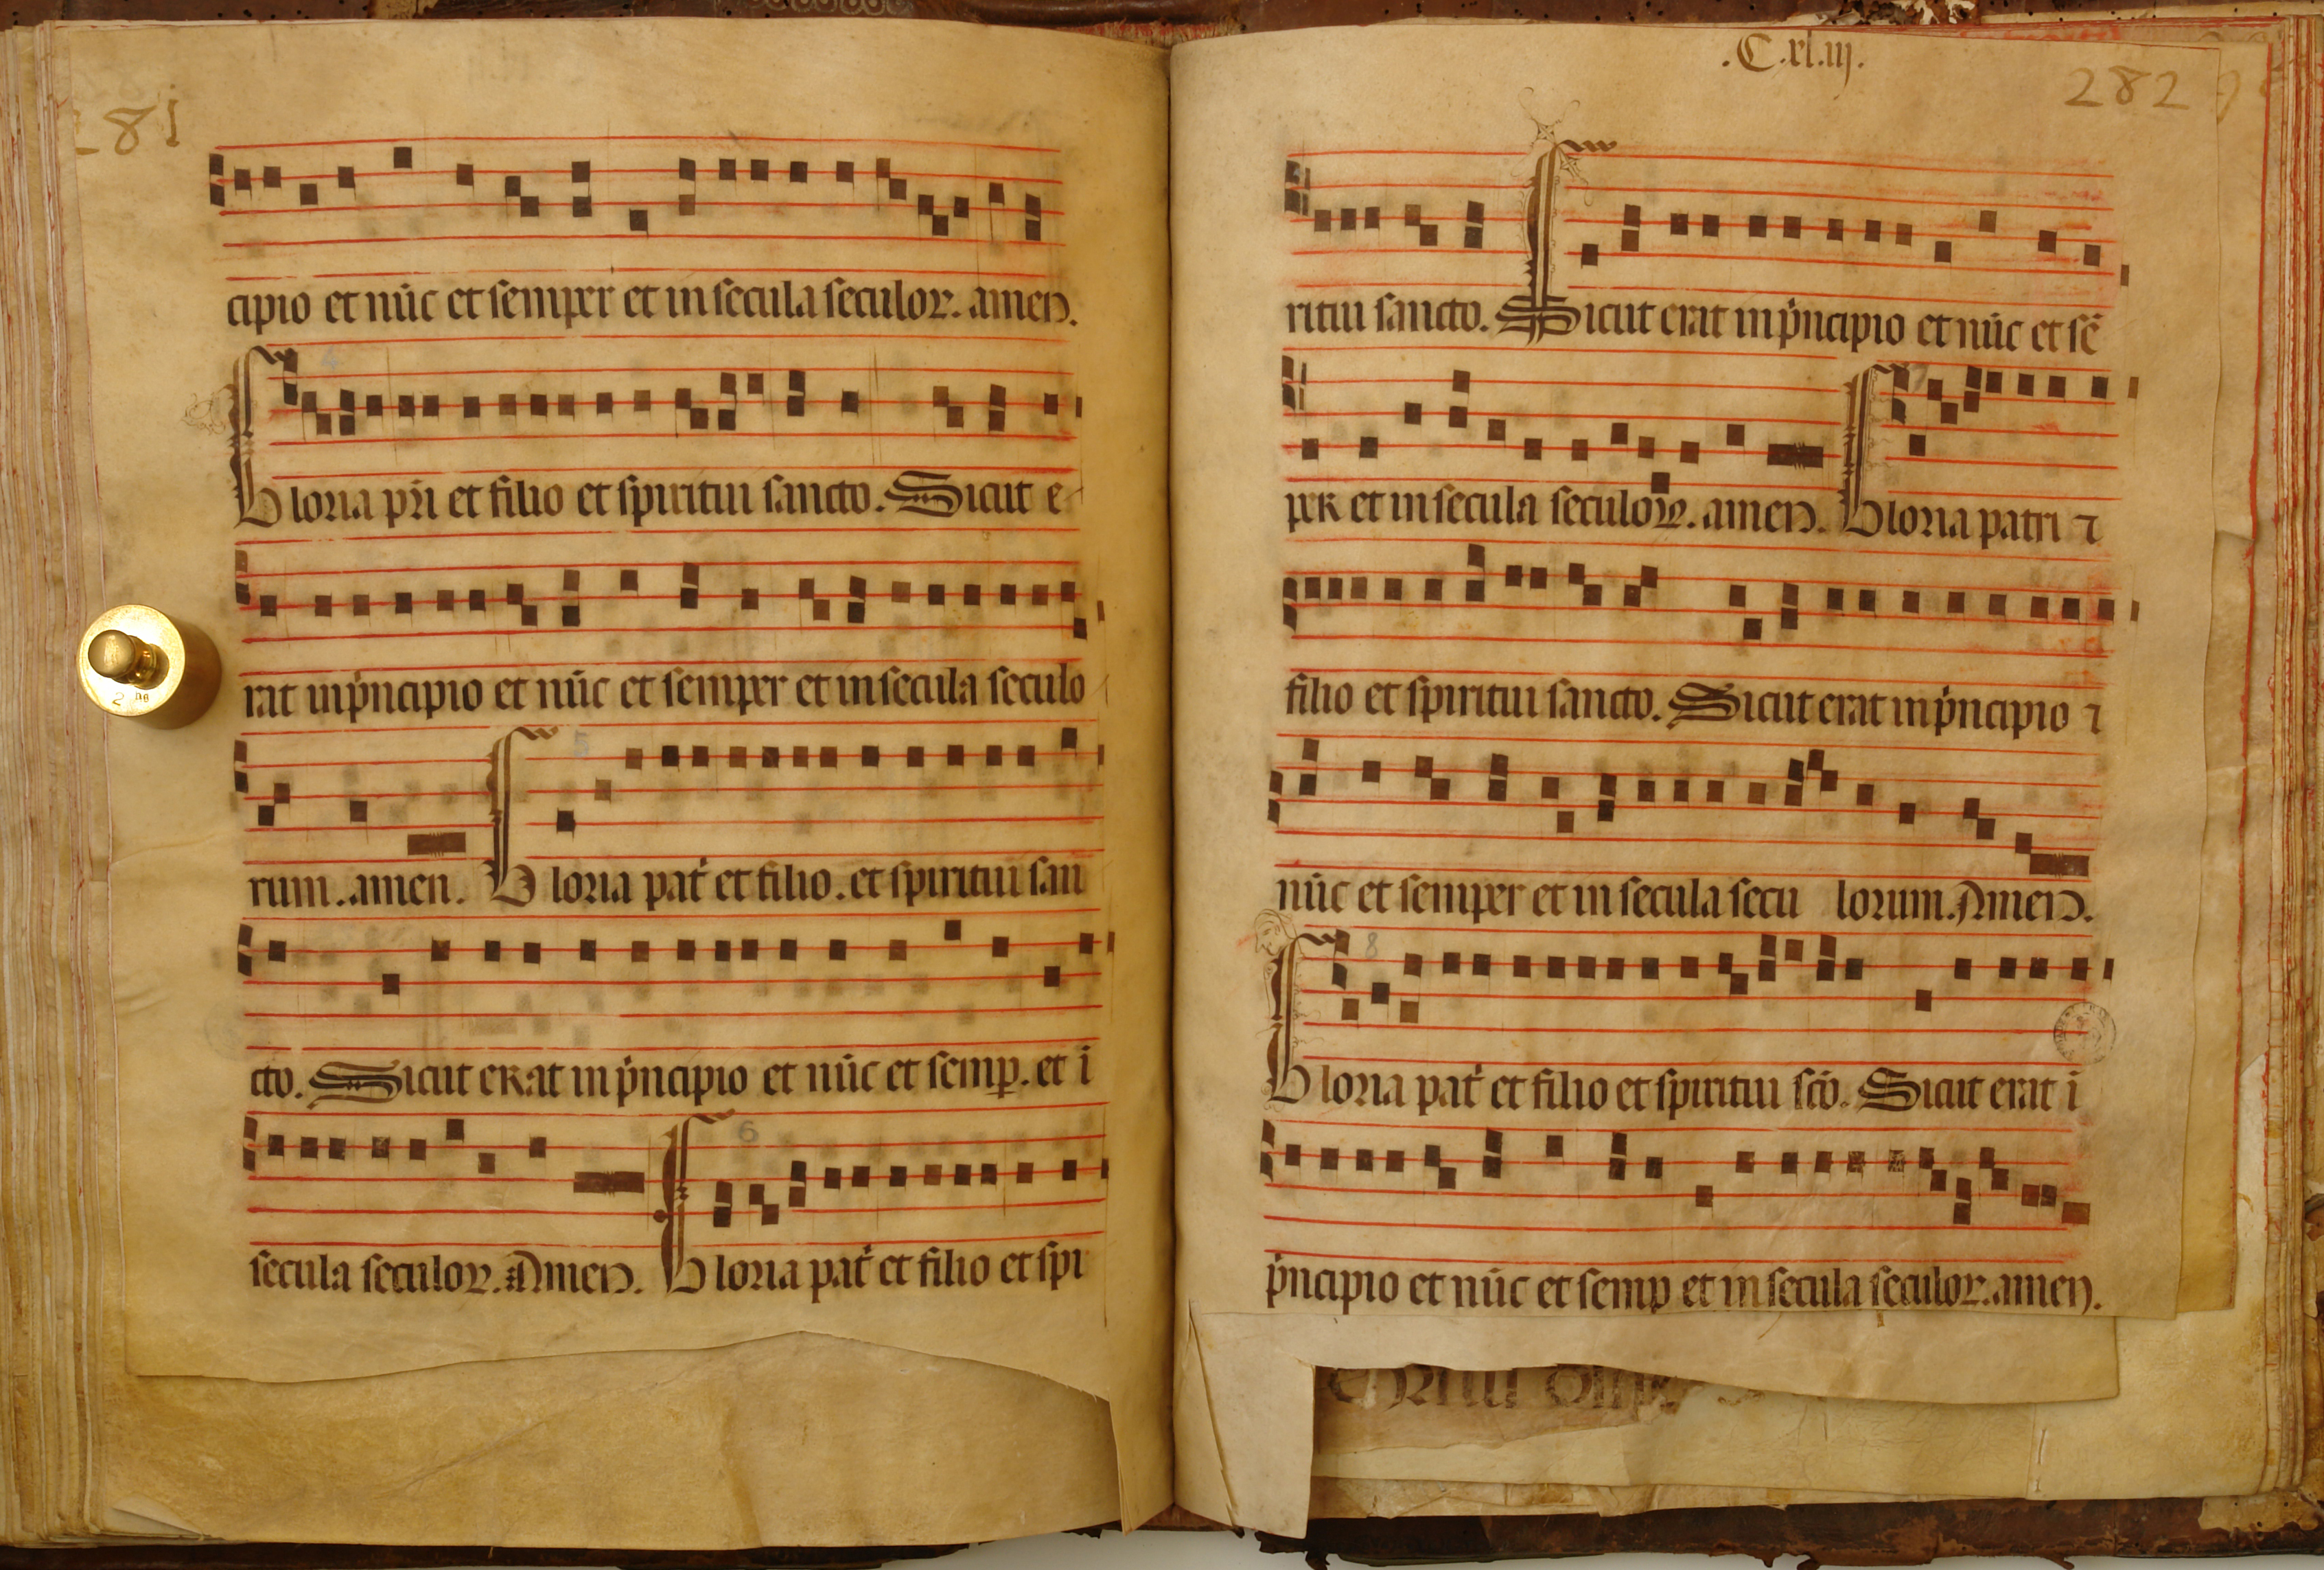 281
cipio et nūc et semper et in secula seculoꝝ. amen.
4
Gloria pri̇ et filio et spiritui sancto. Sicut e
rat in pͥncipio et nūc et semper et in secula seculo
5
rum. amen. Gloria pat̉ et filio. et spiritui san
cto. Sicut erat in pͥncipio et nūc et semꝑ. et ī
6
secula seculoꝝ. Amen. Gloria pat̉ et filio et spi
2 hg
.C.xl.iij.
282
ritui sancto. Sicut erat in pͥncipio et nūc et sē
per et in secula seculoꝝ. amen. Gloria patri ⁊
filio et spiritui sancto. Sicut erat in pͥncipio ⁊
nūc et semper et in secula secu lorum. Amen.
8
Gloria pat̉ et filio et spiritui sc̄o. Sicut erat ī
pͥncipio et nūc et semꝑ et in secula seculoꝝ. amen.